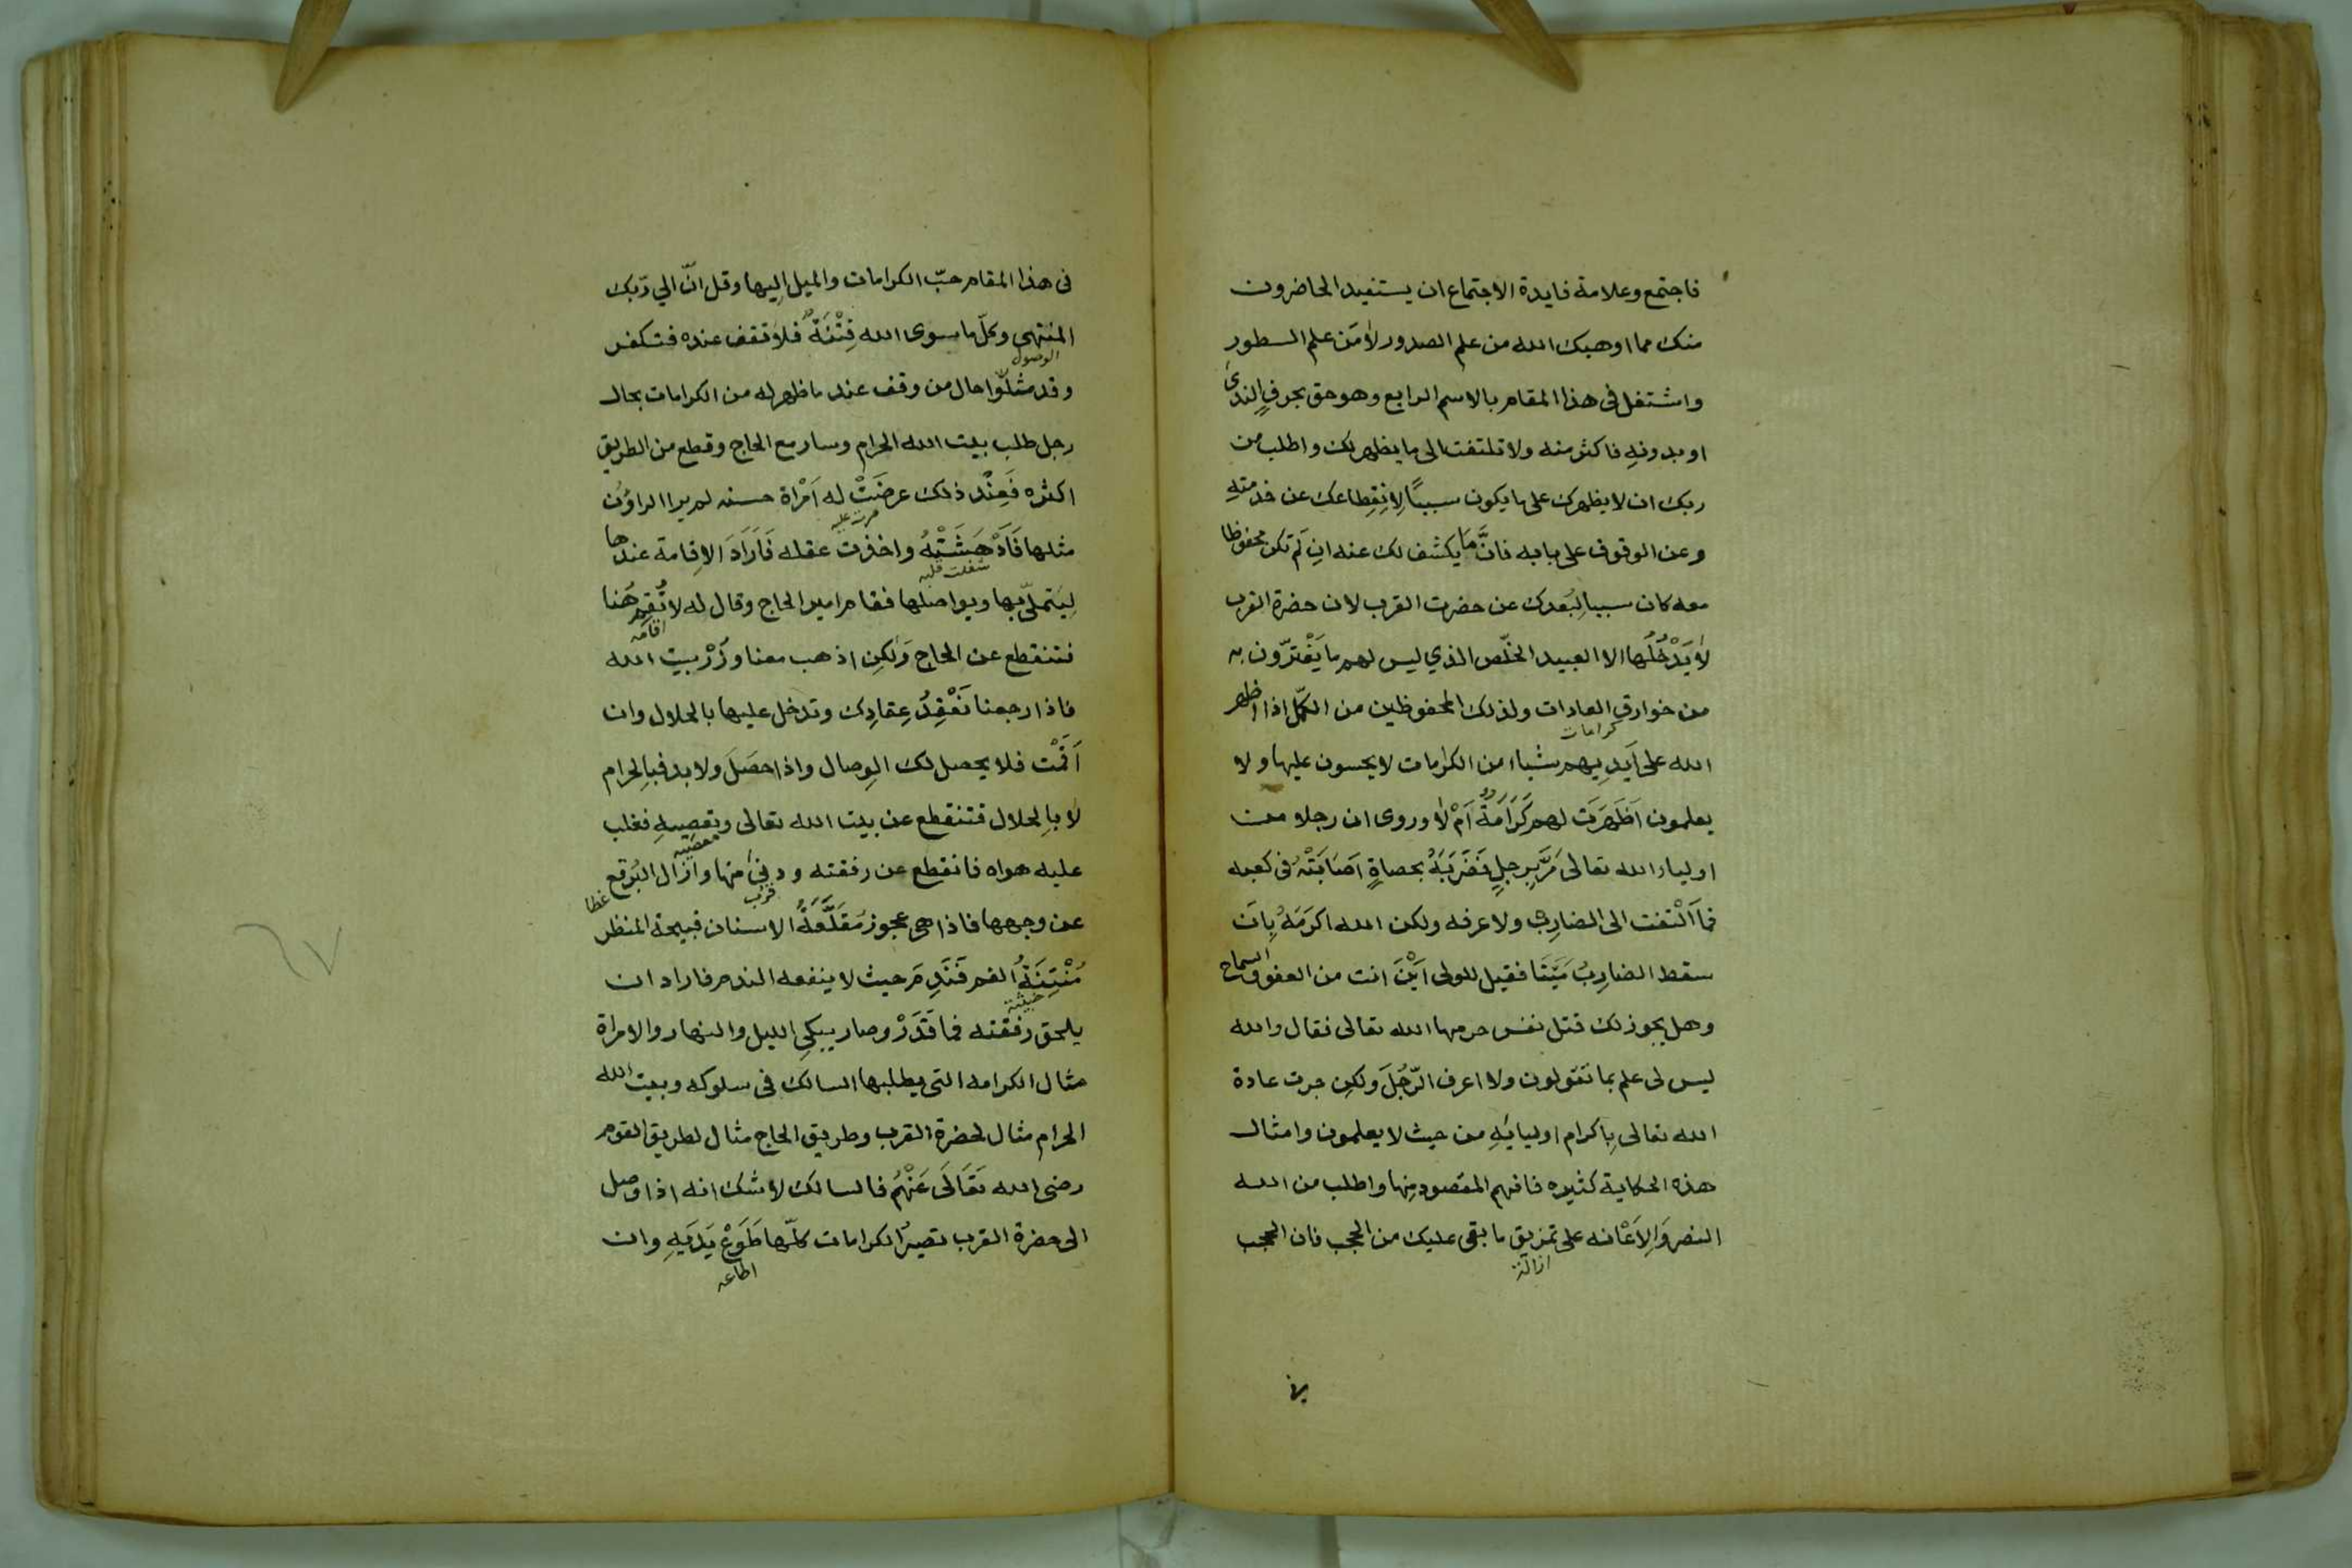 فاجتمع وعلامة فايدة الاجتماع ان يستفيد الحاضرون
منك مما اوهبك الله من علم الصدور لا من علم السطور
واشتغل فى هذا المقام بالاسم الرابع وهو حق بحرف الندىٔ
او بدونه فاكثر منه ولا تلتفت الى ما يظهر لك واطلب من
ربك ان لا يظهرك على ما يكون سببًا لِانِقِطاعك عن خدمتهِ
وعن الوقوف على بابه فانَّ مَا يكشف لك عنه ان لَم تكن محفوظا
معه كان سببا لِبُعدك عن حضرت القرب لان حضرة القرب
لا يَدْخُلُها الا العبيد الخلّص الذي ليس لهم ما يَغْترّون به
من خوارق العادات ولذلك المحفوظين من الكمّل اذا اظهر
كرامات
الله على اَيَدِيهم شياء من الكرمات لا يحسون عليها ولا
يعلمون اَظَهَرَت لهم كَرَامَةٌ اَمْ لا وروى ان رجلا من
اولياء الله تعالى مَرَّ بِرجلٍ فَضَرَبَهُ بحصاةٍ اَصَابَتْهُ فى كعبه
فما اَلْتفت الى الضارِب ولا عرفه ولكن الله اكرَمَهُ بِاَن
سقط الضارِبُ مَيّتَا فقيل للولى اَيْنَ انت من العفو والسماح
وهل يجوز لك قتل نفس حرمها الله تعالى فقال والله
ليس لى علم بما تقولون ولا اعرف الرّجُلَ ولكِن جرت عادة
الله تعالى بِاكرام اوليايَهِ من حيث لا يعلمون وامثال
هذه الحكاية كثيره فافهم المقصود مِنها واطلب من الله
النصر وَالِاَعْانه على تمزيق ما بقى عليك من الحجب فان الحجب
ازالة
فى هذا المقام حبّ الكرامات والميل اِليها وقل انّ الي رّبك
المنتهى وكلّ ما سوى الله فِتْنَةٌ فلا تقف عنده فتكفر
الوصول
وقد مثلّوا حال من وقف عند ما ظهر له من الكرامات بحال
رجل طلب بيت الله الحرام وسار مع الحاج وقطع من الطريق
اكثره فَعِنْد ذلك عرضَتْ له اَمْراة حسنه لم يرا الراؤن
مرت عليه
مثلها فَاَدْهَشَتْهُ واخذت عقله فَاَرَادَ الاِقامة عندها
شغلت قلبه
لِيَتملّى بها ويواصلها فقام امير الحاج وقال له لا تُقِم هُنا
اقامه
فتنقطع عن الحاج وَلكِن اذهب معنا وزُرْ بيت الله
فاذا رجعنا نَعْقِدُ عِقادِك وتدخل عليها بالحلال وان
اَقَمْت فلا يحصل لك الوِصال واذا حصَلَ ولا بد فبِالحرام
لا باِلحلال فتنقطع عن بيت الله تعالى وتعصيهِ فغلب
معصيه
عليه هواه فانقطع عن رفقته ودنىٰ منها وازال البُرقع
قرب
غطا
عن وجهها فاذا هى عجوز مُقَلَّعَةُ الاسنان قبيحة المنظر
مُنْتِنَةُ الفم فَنَدِمَ حيث لا ينفعه الندم فاراد ان
خبيثة
يلحق رفقته فما قَدَرْ وصار يبكي الليل والنهار والامراة
مثال الكرامه التى يطلبها السالك فى سلوكه وبيت الله
الحرام مثال لحضرة القرب وطريق الحاج مثال لطريق القوم
رضى الله تَعَالَى عَنْهُم فالسالك لا شك انه اذا وصل
الى حضرة القرب تصيرُ الكرامات كلّها طَوَعْ يَدَيَهِ وان
اطاعه